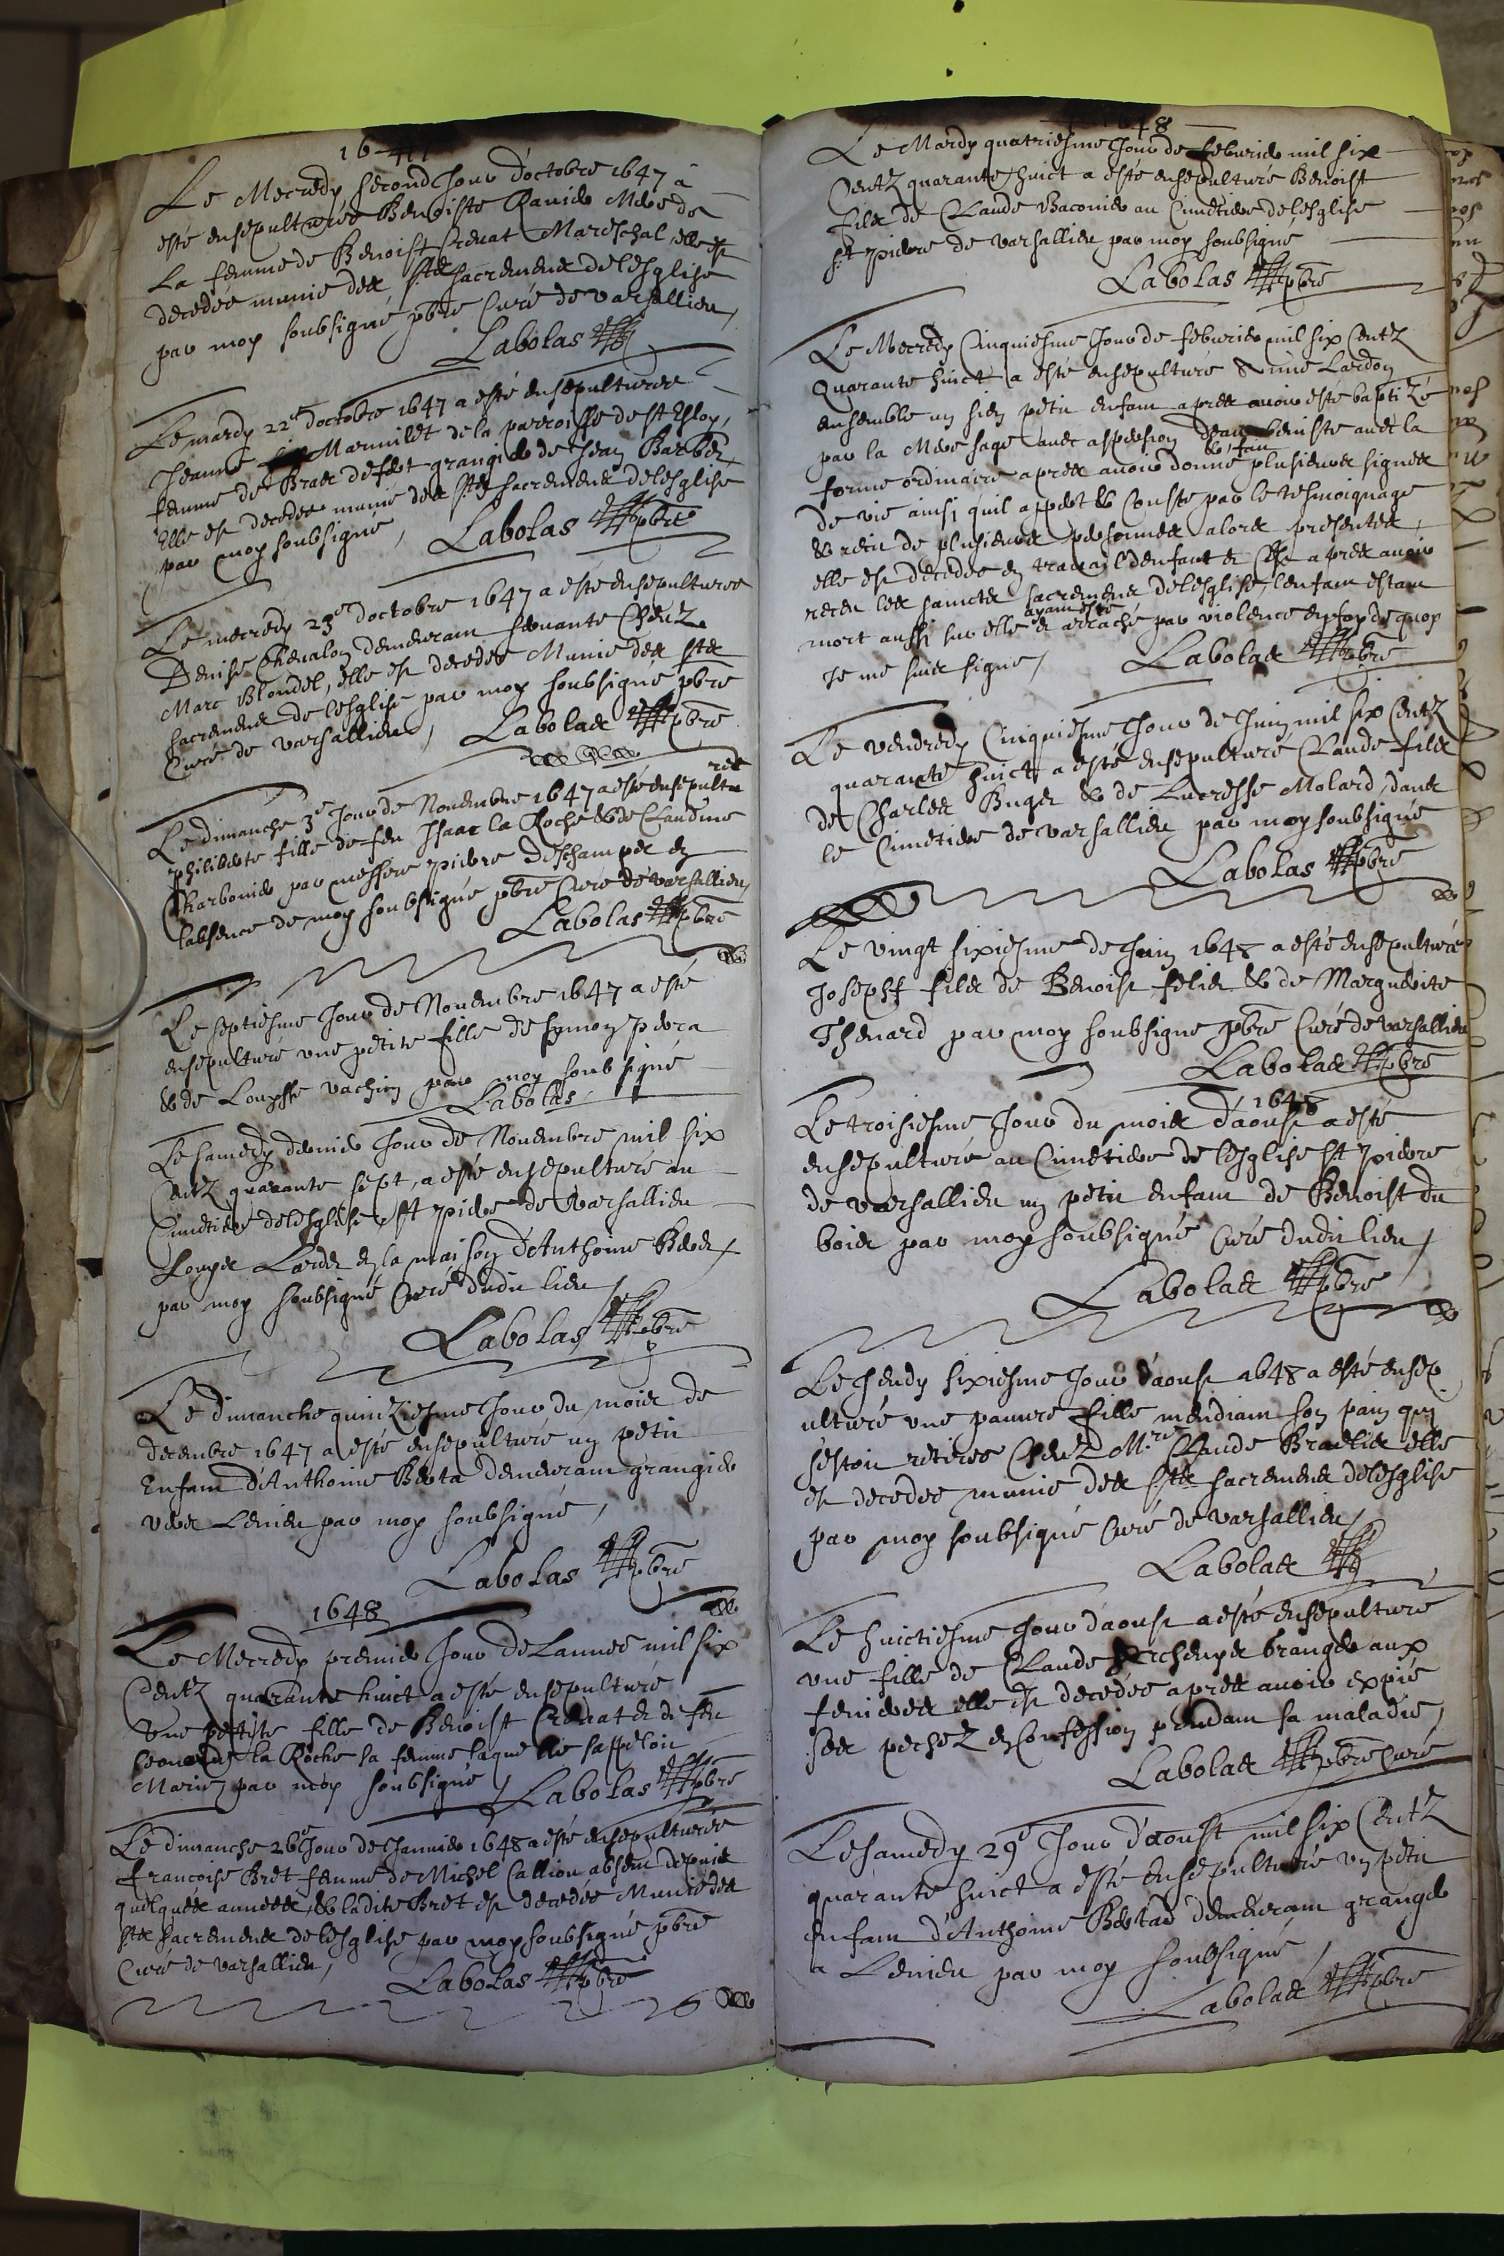 1647
Le Mecredy second Jour d'octobre 1647 a
esté ensepulturée Benoiste Ravier Mere de
La femme de Benoist Crevat Mareschal, elle est
decedée munie des sts sacremens de lesglise
par moy soubsigné pbre Curé de varsallieu,
Labolas
Le mardy 22e doctobre 1647 a esté ensepulturée
Jeanne Marmilet de la parroisse de st Esloy,
femme de grangier de Jean Barbier
Elle est decedée munie des sts sacremens de lesglise
par moy soubsigné, Labolas pbre
Le mecredy 23e doctobre 1647 a esté ensepulturée
Denise Chevalon demeurant servante Chez
Marc Blondel, elle est decedée Munie des sts
sacremens de lesglise par moy soubsigné pbre
Curé de varsallieu, Labolas pbre
Le dimanche 3e Jour de Novembre 1647 a esté ensepultu
rée
philiberte fille de feu Isaac la Roche & de Claudine
Charbonier par messire pierre Deschamps en
labsence de moy soubsigné pbre Curé de varsallieu,
Labolas pbre
Le septiesme Jour de Novembre 1647 a esté
ensepulturé une petite fille de symon pera
& de Louyse vachon par moy soubsigné
Labolas
Le samedy dernier Jour de Novembre mil six
Centz quarante sept, a esté ensepulturé au
Cimetiere de lesglise st pierre de Varsallieu
en la maison d'Anthoine
par moy soubsigné Curé dudit lieu,
Labolas pbre
Le dimanche quinziesme Jour du mois de
decembre 1647 a esté ensepulturé un petit
Enfant d'Anthoine Berta demeurant grangier
vers Lenieu par moy soubsigné,
Labolas pbre
1648
Le Mecredy premier Jour de Lannée mil six
Centz quarante huict a esté ensepulturé
Une petite fille de Benoist Crevat et de feu
Leonarde la Roche sa femme laquelle sappeloit
Marie par moy soubsigné, Labolas pbre
Le dimanche 26e Jour de Janvier 1648 a esté ensepulturée
françoise Bret femme de Michel Callion absent depuis
quelques années, & ladite Bret est decedée Munie des
sts sacremens de lesglise par moy soubsigné pbre
Curé de varsallieu,
Labolas pbre
1648
Le Mardy quatriesme Jour de febvrier mil six
Centz quarante huict a esté ensepulturé Benoist
filz de Claude Baconier au Cimetiere de lesglise
st pierre de varsallieu par moy soubsigné
Labolas pbre
Le Mecredy Cinquiesme Jour de febvrier mil six Centz
Quarante huict a esté ensepulturé Lardon
ensemble un sien petit enfant apres avoir esté baptizé
par la Mere sage avec aspersion d'eau beniste avec la
forme ordinaire apres avoir donné plusieurs signes
de vie ainsi quil appert & Conste par le tesmoignage
& recit de plusieurs personnes alors presentes,
elle est decedée en travail d'enfant et Ce apres avoir
receu les saincts sacremens de lesglise, lenfant estant
ayant esté
mort aussi sur elle et arraché par violence en foy de quoy
Je me suis signé, Labolas pbre
Le vendredy Cinquiesme Jour de Juin mil six Centz
quarante huict a esté ensepulturé Claude filz
de Charles Buger & de Lucresse Molard, dans
le Cimetiere de varsallieu par moy soubsigné
Labolas pbre
Le vingt sixiesme de Juin 1648 a esté ensepulturé
Joseph filz de Benoist felix & de Marguerite
Thenard par moy soubsigné pbre Curé de varsallieu
Labolas pbre
1648
Le troisiesme Jour du mois d'aoust a esté
ensepulturé au Cimetiere de lesglise st pierre
de varsallieu un petit enfant de Benoist du
bois par moy soubsigné Curé dudit lieu,
Labolas pbre
Le Jeudy sixiesme Jour d'aoust 1648 a esté ensep
ulturé une pauvre fille mendiant son pain qui
sestoit retirée Chez Mre Claude elle
est decedée munie des sts sacremens de lesglise
par moy soubsigné Curé de varsallieu,
Labolas
Le huictiesme Jour daoust a esté ensepulturé
une fille de Claude granger aux
elle est decedée apres avoir expié
ses pechez en Confession pendant sa maladie,
Labolas pbre Curé
Le samedy 29e Jour d'aoust mil six Centz
quarante huict a esté Ensepulturé un petit
enfant d'Anthoine Berta demeurant granger
a Lenieu par moy soubsigné,
Labolas pbre